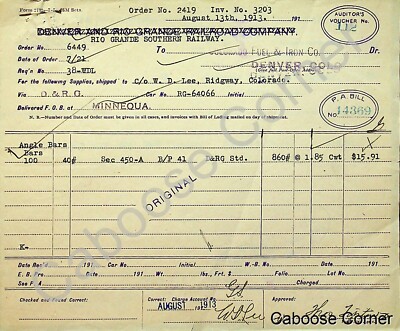 Order No. 2419 Inv. No. 3203
August 13th, 1913. 191
AUDITOR'S
VOUCHER No.
112
DENVER AND RIO GRANDE RAILROAD COMPANY
RIO GRANDE SOUTHERN RAILWAY.
Order No. 6449 To COLORADO FUEL & IRON Co. Dr.
Date of Order 7/21 DENVER, COLO.
Your No. 38-WDL
For the following Supplies, shipped to C/o W. D. Lee, Ridgway, Colorado.
Via D. & R.G. Car No. RG-64066 Initial
Delivered F. O. B. at MINNEQUA.
P. A. BILL
No. 14369
N. B.—Number and Date of Order must be given in all cases, and invoices with Bill of Lading mailed on day of shipment.
Angle Bars
Bars
100 40# Sec 450-A B/P 41 D&RG Std. 860# @ 1.85 Cwt $15.91
ORIGINAL
K-
Date Rec'd 191 Car No. Initial W.-B. No. Dated 191
E. B. Pro. Dated 191 Wt. lbs., Frt. $ Folio Lot No.
See F. A. Charged
Checked and Found Correct: Correct: Charge Account
AUGUST 1913
Approved:
Caboose Corner
Caboose Corner